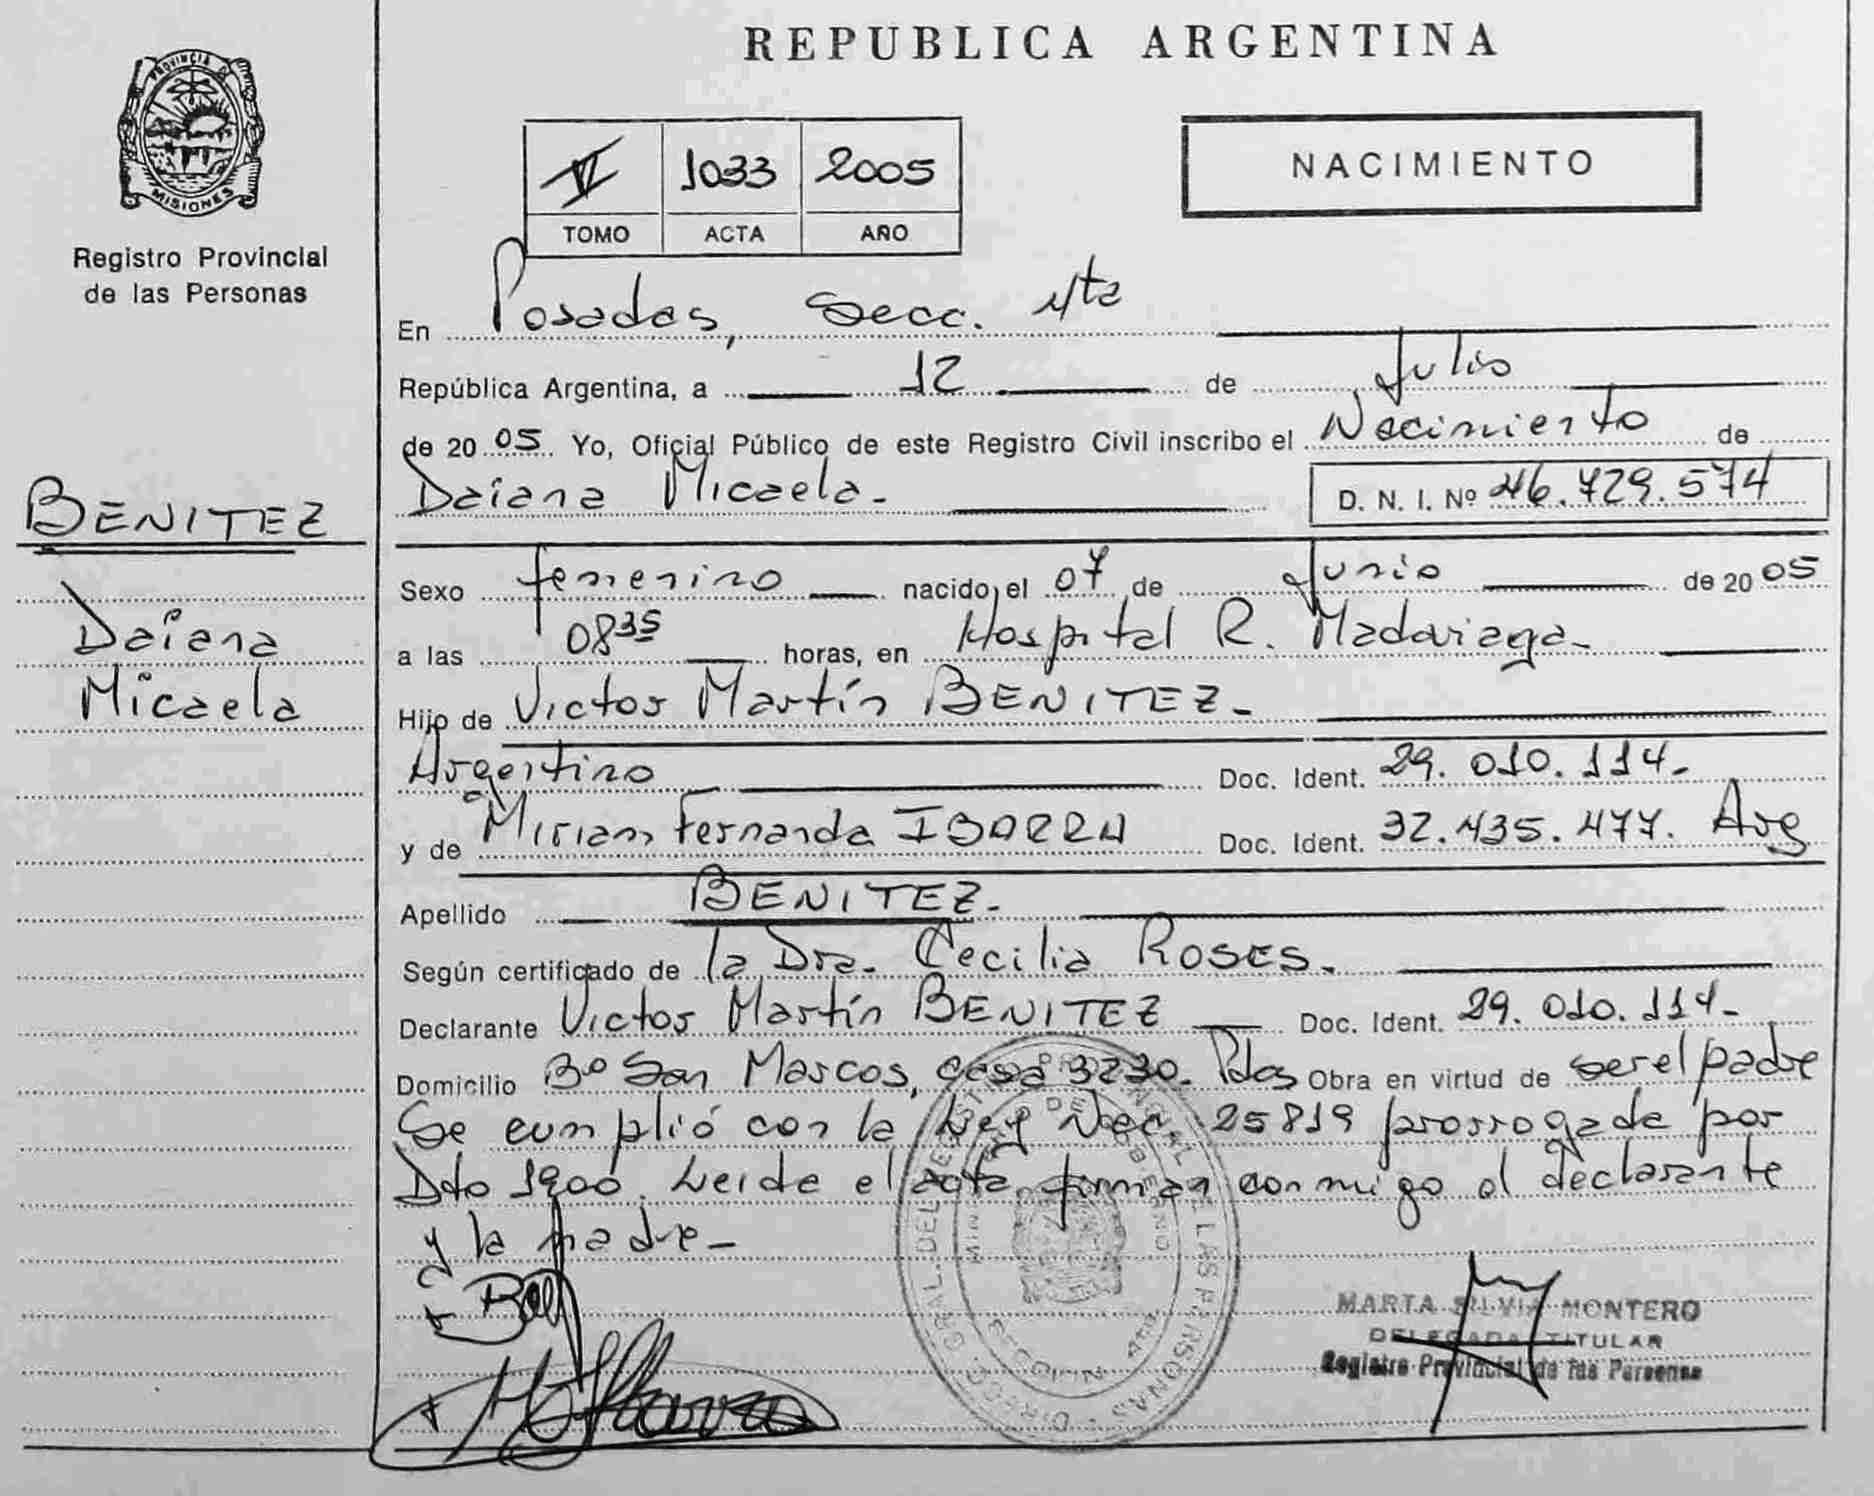 REPUBLICA ARGENTINA
PROVINCIA DE
MISIONES
Registro Provincial
de las Personas
VI 1033 2005
TOMO ACTA AÑO
NACIMIENTO
En Posadas, Secc. 4ta
República Argentina, a 12 de Julio
de 2005 Yo, Oficial Público de este Registro Civil inscribo el Nacimiento de
Daiana Micaela.- D. N. I. Nº 46.729.574
BENITEZ
Daiana
Micaela
Sexo femenino nacido el 07 de Junio de 2005
a las 08 35 horas, en Hospital R. Madariaga-
Hijo de Victor Martín BENITEZ-
Argentino Doc. Ident. 29.010.114-
y de Miriam Fernanda IBARRA Doc. Ident. 32.435.477. Arg
Apellido BENITEZ-
Según certificado de la Dra. Cecilia ROSES.
Declarante Victor Martín BENITEZ Doc. Ident. 29.010.114-
Domicilio Bº San Marcos, casa 3230. Pdas Obra en virtud de ser el padre
Se cumplió con la Ley Nac. 25819 prorrogada por
Dto 1900. Leida el acta firman conmigo el declarante
y la madre-
MARTA SILVIA MONTERO
DELEGADA TITULAR
Registro Provincial de las Personas